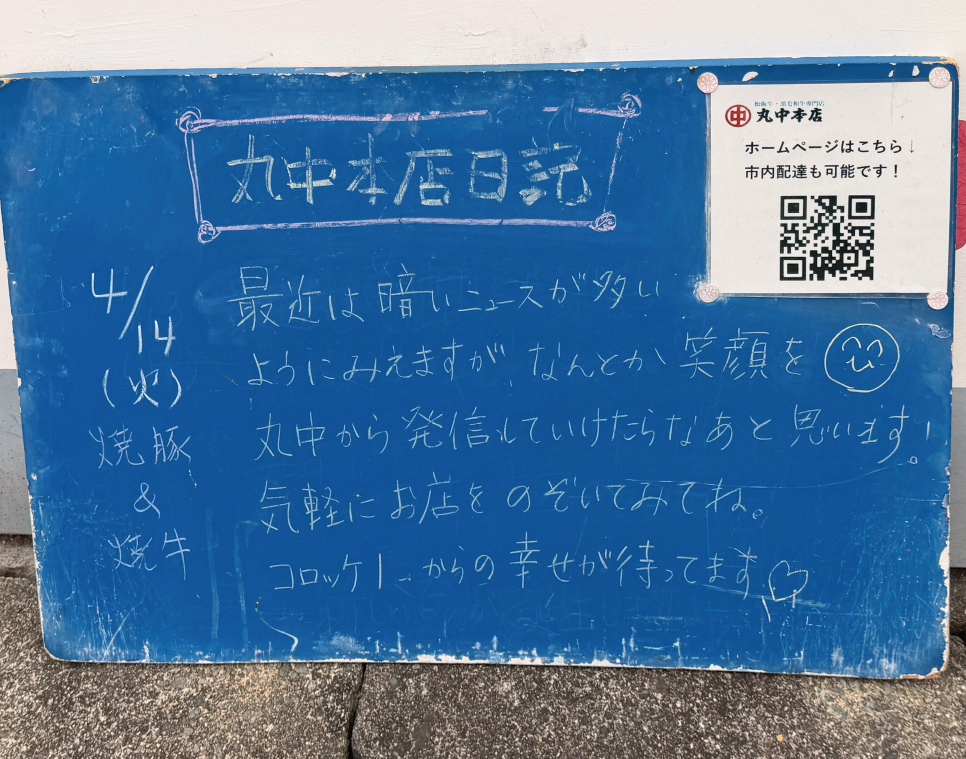 丸中本店日記
松阪牛・黒毛和牛専門店
中 丸中本店
ホームページはこちら↓
市内配達も可能です！
4/14
(火)
焼豚
&
焼牛
最近は暗いニュースが多い
ようにみえますが、なんとか笑顔を
丸中から発信していけたらなあと思います。
気軽にお店をのぞいてみてね。
コロッケ1コからの幸せが待ってます♡